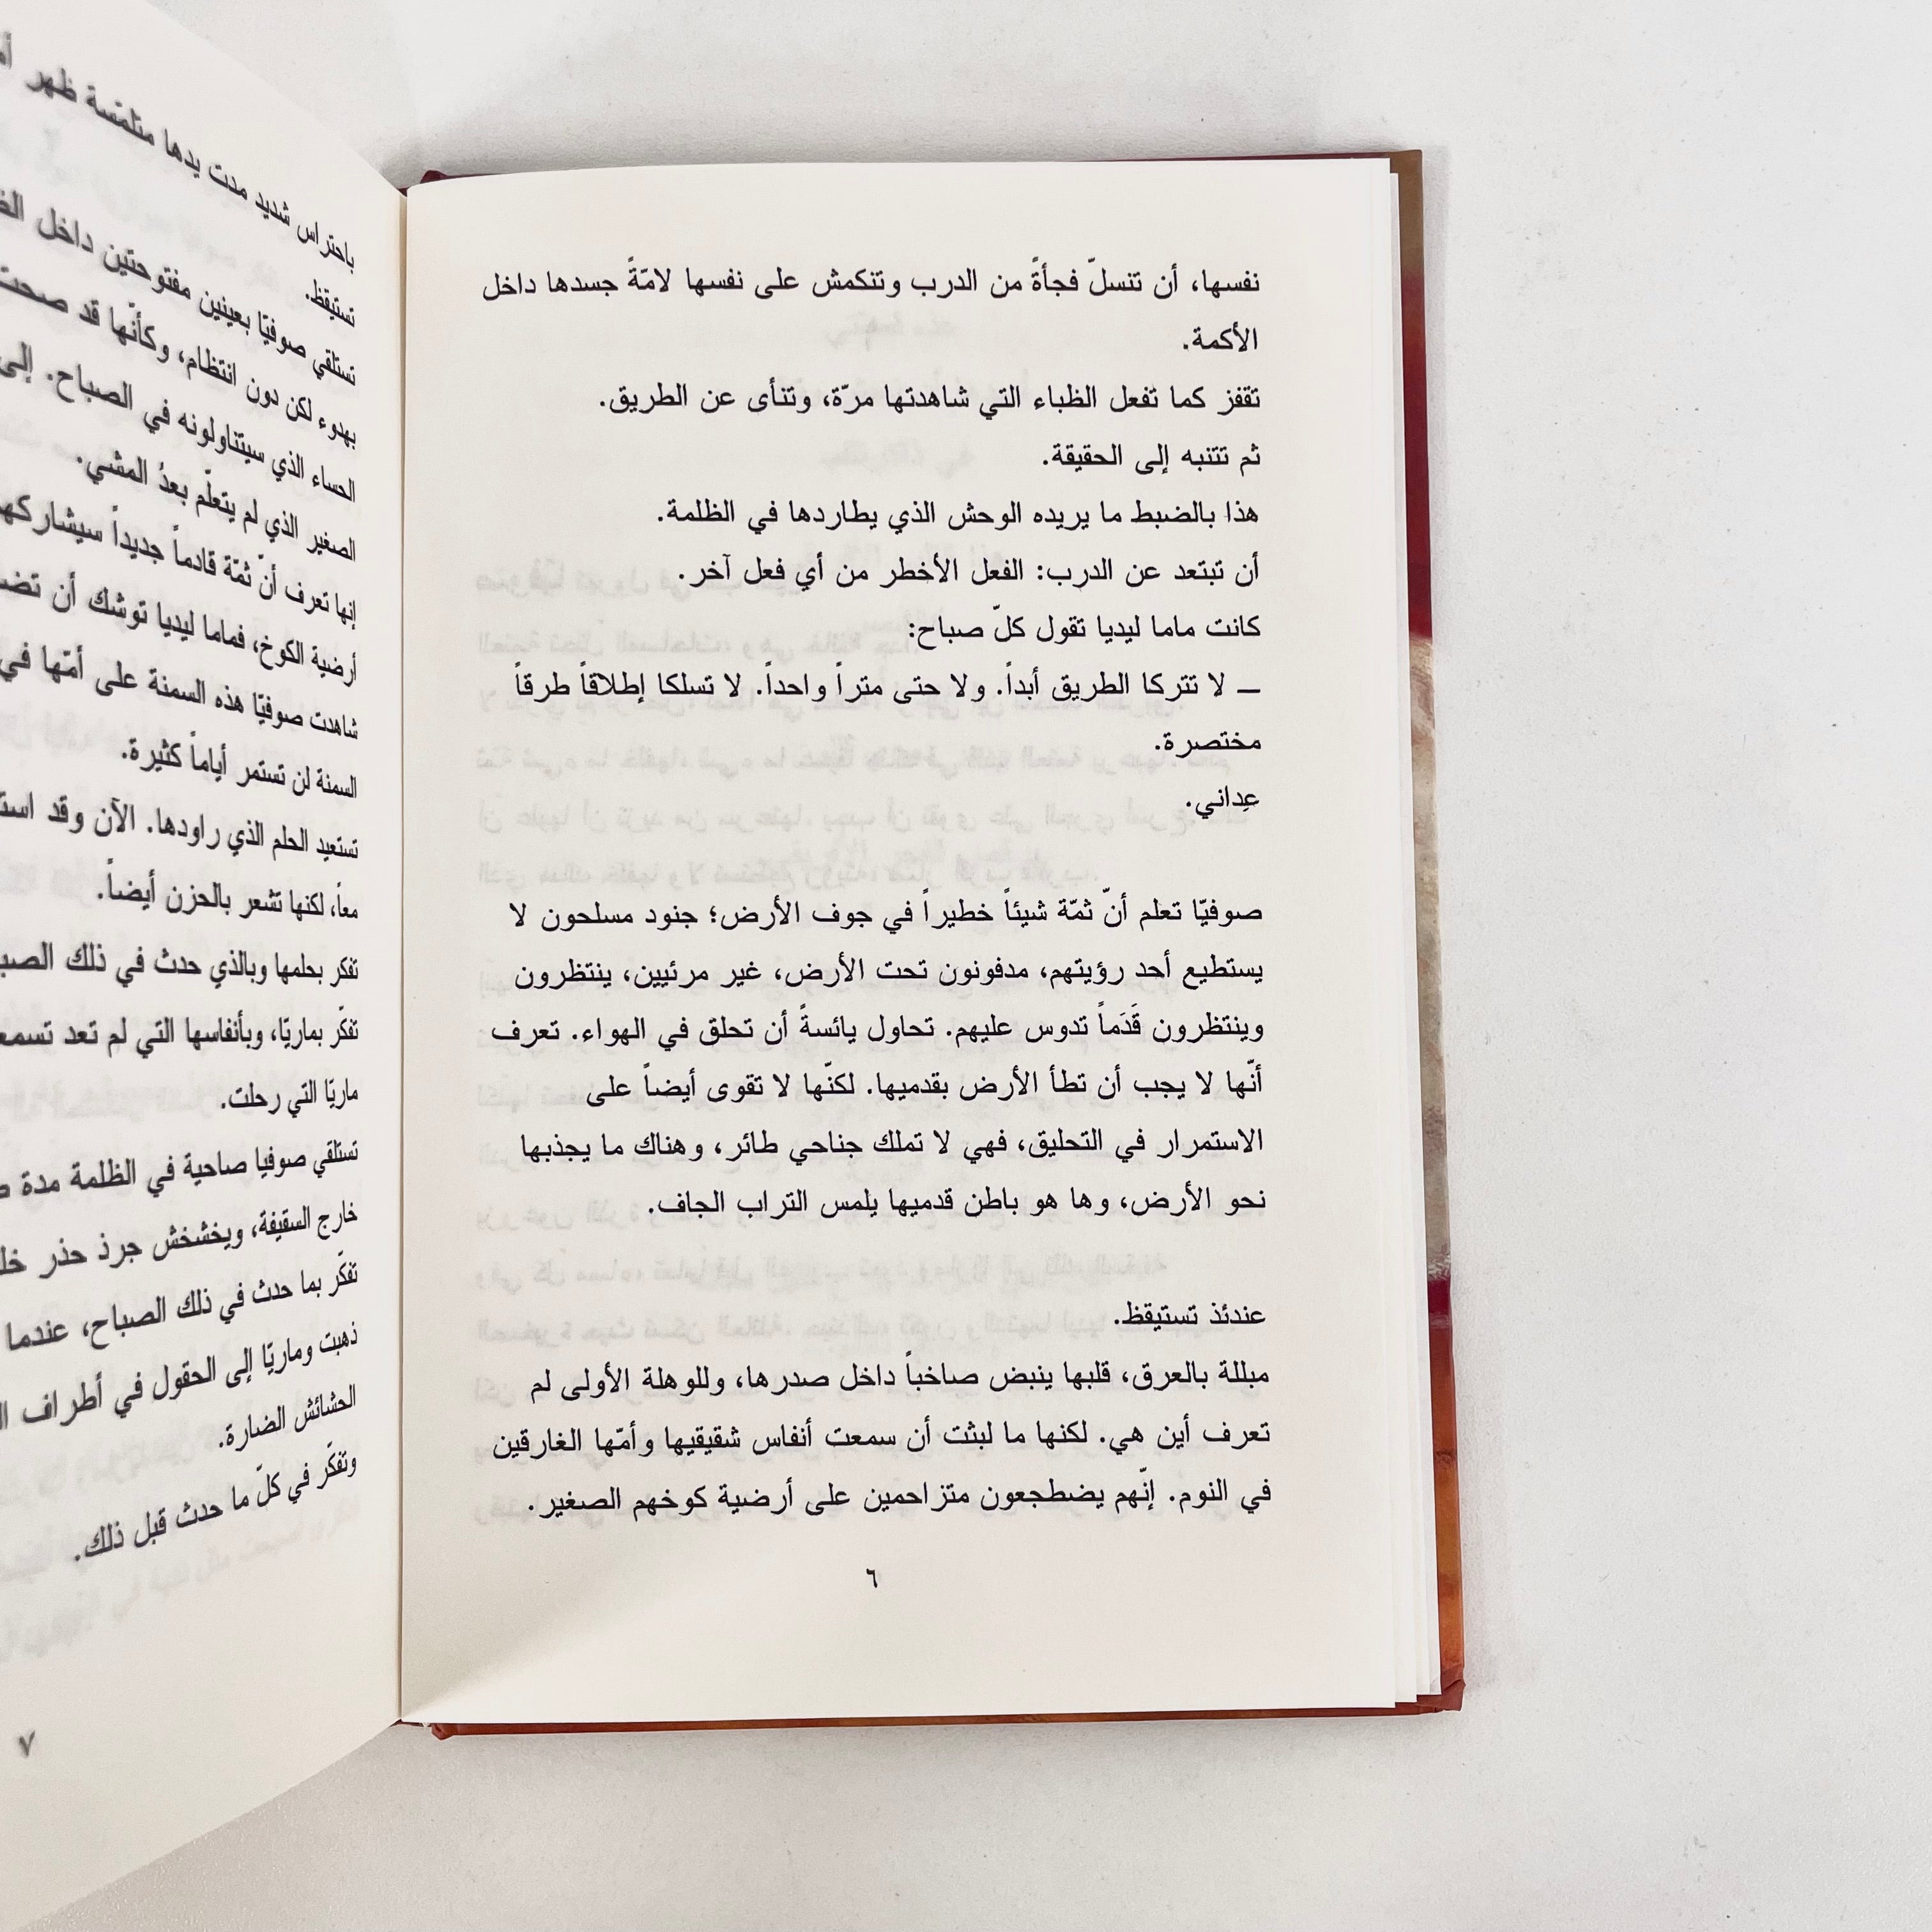 نفسها، أن تنسلّ فجأةً من الدرب وتنكمش على نفسها لامّةً جسدها داخل
الأكمة.
تقفز كما تفعل الظباء التي شاهدتها مرّة، وتنأى عن الطريق.
ثم تتنبه إلى الحقيقة.
هذا بالضبط ما يريده الوحش الذي يطاردها في الظلمة.
أن تبتعد عن الدرب: الفعل الأخطر من أي فعل آخر.
كانت ماما ليديا تقول كلّ صباح:
ــ لا تتركا الطريق أبداً. ولا حتى متراً واحداً. لا تسلكا إطلاقاً طرقاً
مختصرة.
عِداني.
صوفيّا تعلم أنّ ثمّة شيئاً خطيراً في جوف الأرض؛ جنود مسلحون لا
يستطيع أحد رؤيتهم، مدفونون تحت الأرض، غير مرئيين، ينتظرون
وينتظرون قَدَماً تدوس عليهم. تحاول يائسةً أن تحلق في الهواء. تعرف
أنّها لا يجب أن تطأ الأرض بقدميها. لكنّها لا تقوى أيضاً على
الاستمرار في التحليق، فهي لا تملك جناحي طائر، وهناك ما يجذبها
نحو الأرض، وها هو باطن قدميها يلمس التراب الجاف.
عندئذ تستيقظ.
مبللة بالعرق، قلبها ينبض صاخباً داخل صدرها، وللوهلة الأولى لم
تعرف أين هي. لكنها ما لبثت أن سمعت أنفاس شقيقيها وأمّها الغارقين
في النوم. إنّهم يضطجعون متزاحمين على أرضية كوخهم الصغير.
٦
باحتراس شديد مدت يدها متلمّسة ظهر
تستيقظ.
تستلقي صوفيّا بعينين مفتوحتين داخل
بهدوء لكن دون انتظام، وكأنّها قد صحت
الحساء الذي سيتناولونه في الصباح. إلى
الصغير الذي لم يتعلّم بعدُ المشي.
إنها تعرف أنّ ثمّة قادماً جديداً
أرضية الكوخ، فماما ليديا توشك أن
شاهدت صوفيّا هذه السمنة على أمّها في
السمنة لن تستمر أياماً كثيرة.
تستعيد الحلم الذي راودها. الآن وقد
معاً، لكنها تشعر بالحزن أيضاً.
تفكر بحلمها وبالذي حدث في ذلك
تفكّر بماريّا، وبأنفاسها التي لم تعد
ماريّا التي رحلت.
تستلقي صوفيا صاحية في الظلمة مدة
خارج السقيفة، ويخشخش جرذ حذر
تفكّر بما حدث في ذلك الصباح، عندما
ذهبت وماريّا إلى الحقول في أطراف
الحشائش الضارة.
وتفكّر في كلّ ما حدث قبل ذلك.
٧